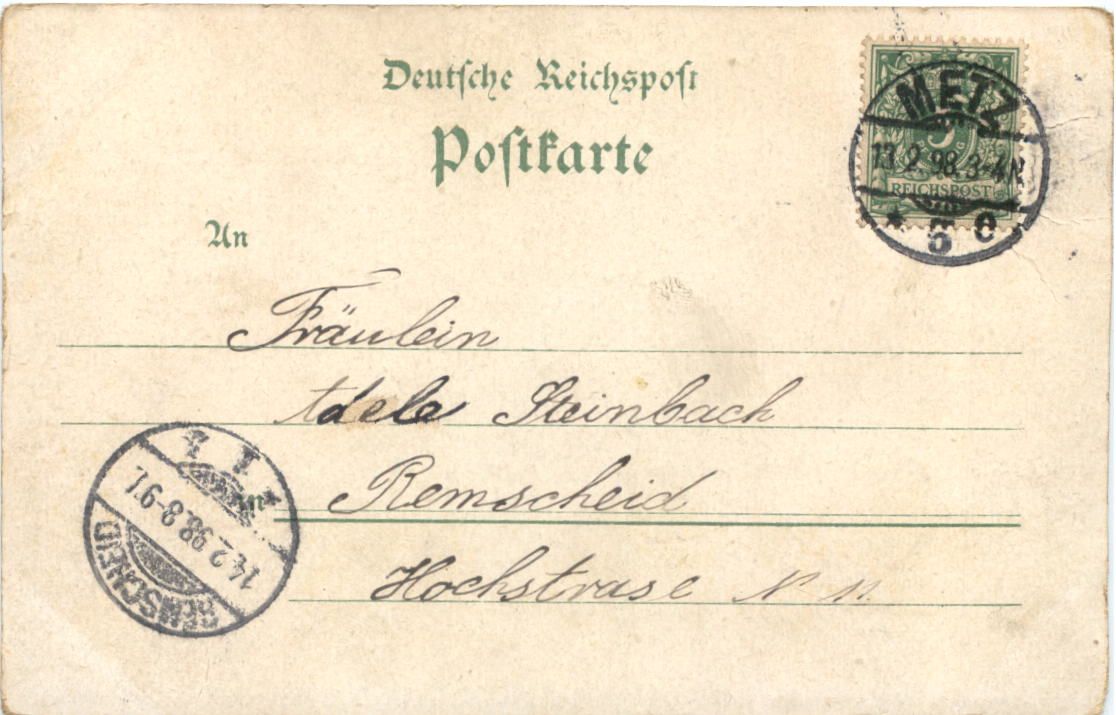 Deutsche Reichspost
Postkarte
METZ
13.2.98.3-4N.
REICHSPOST
* 5 c
An
Fräulein
Adele Steinbach
in Remscheid
Hochstrase N 11.
14.2.98.8-9V.
REMSCHEID